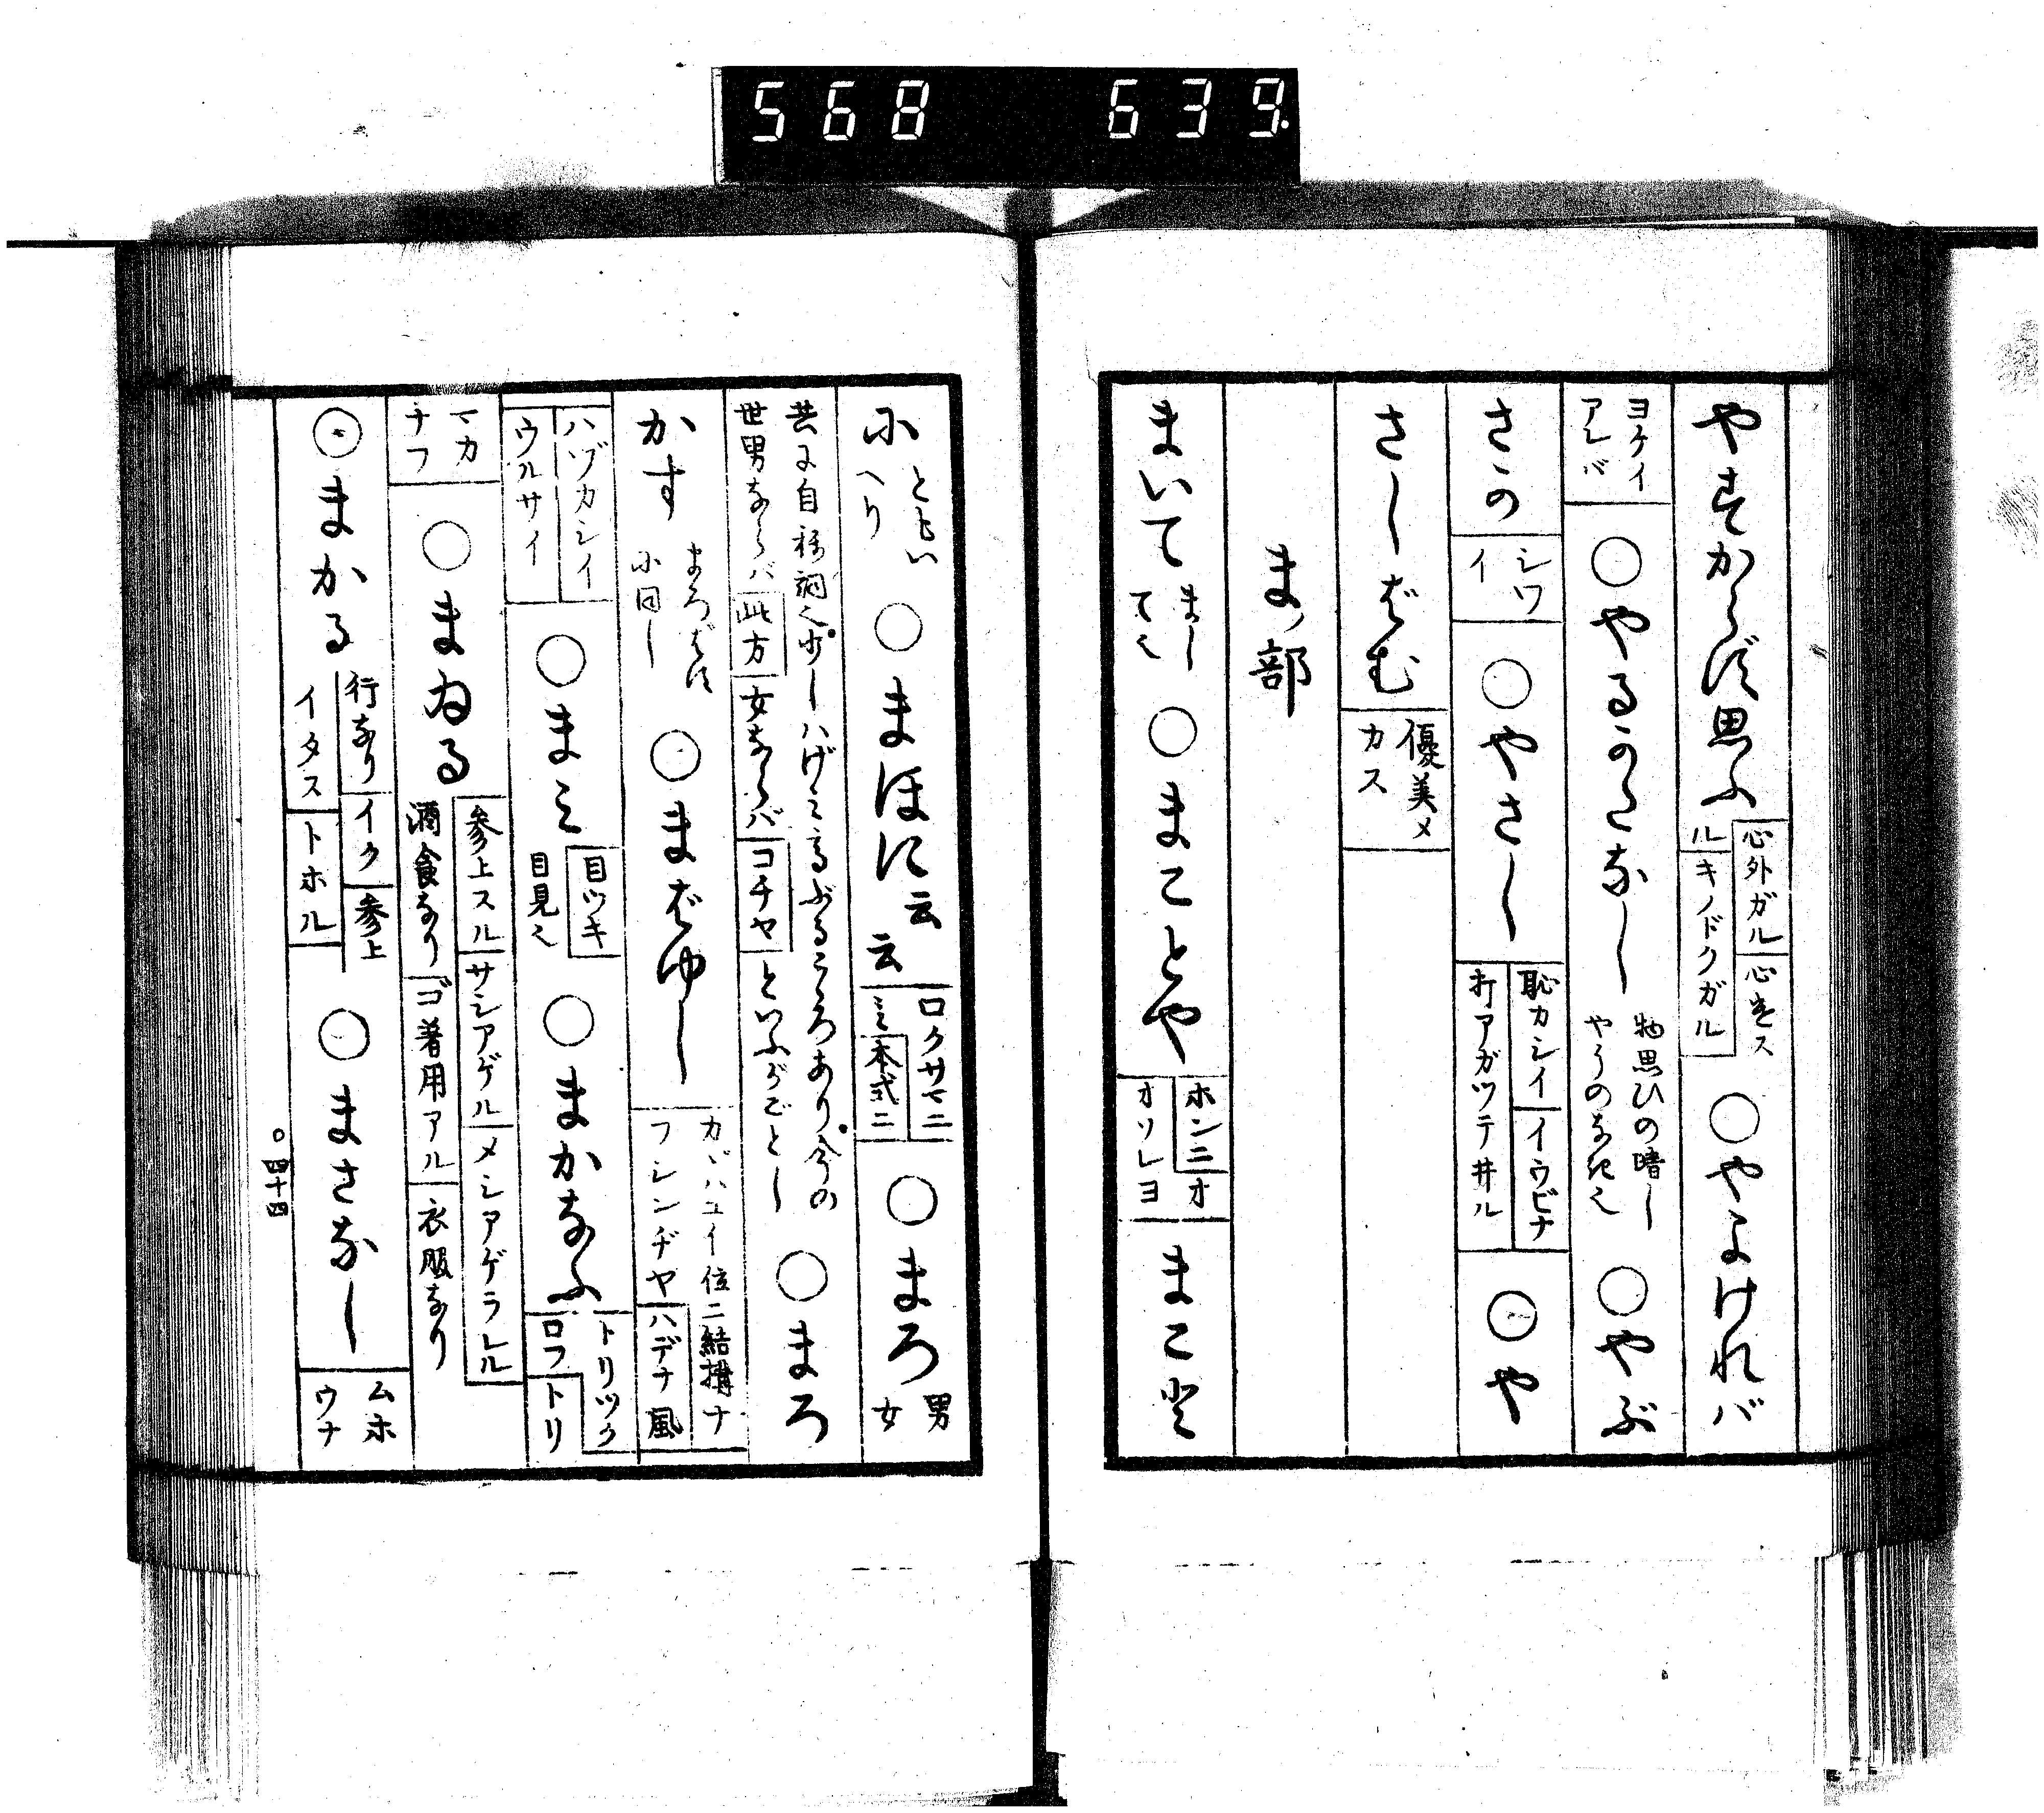 568 639
やすからず思ふ 心外ガル 心遣ス ル キノドクガル ○やよけれバ
ヨケイ アレバ ○やるかたなし 物思ひの晴し やうのなき也 ○やぶ
さかの シワ イ ○やさし 恥カシイ イウビナ 打アガツテ井ル ○や
さしばむ 優美メ カス
まノ部
まいて まし て也 ○まことや ホンニ オ オソレヨ まこと
にといへり ○まほに云云 ロクサマニ ミ 本式ニ ○まろ 男女
共に自称詞也少し 今の 世男ならバ 此方 女ならバ コチヤ といふがごとし ○まろ
かす まろばす に同し ○まばゆし カハユイ位ニ結搆ナ フレンヂヤ ハデナ風
ハヅカシイ ウルサイ ○まミ 目ツキ 目見也 ○まかなふ トリツク ロフ トリ
マカ ナフ ○まゐる 参上スル サシアゲル メシアゲラレル 酒食なり ゴ着用アル 衣服なり
○まかる 行なり イク 参上 イタス トホル ○まさなし ムホ ウナ
○四十四